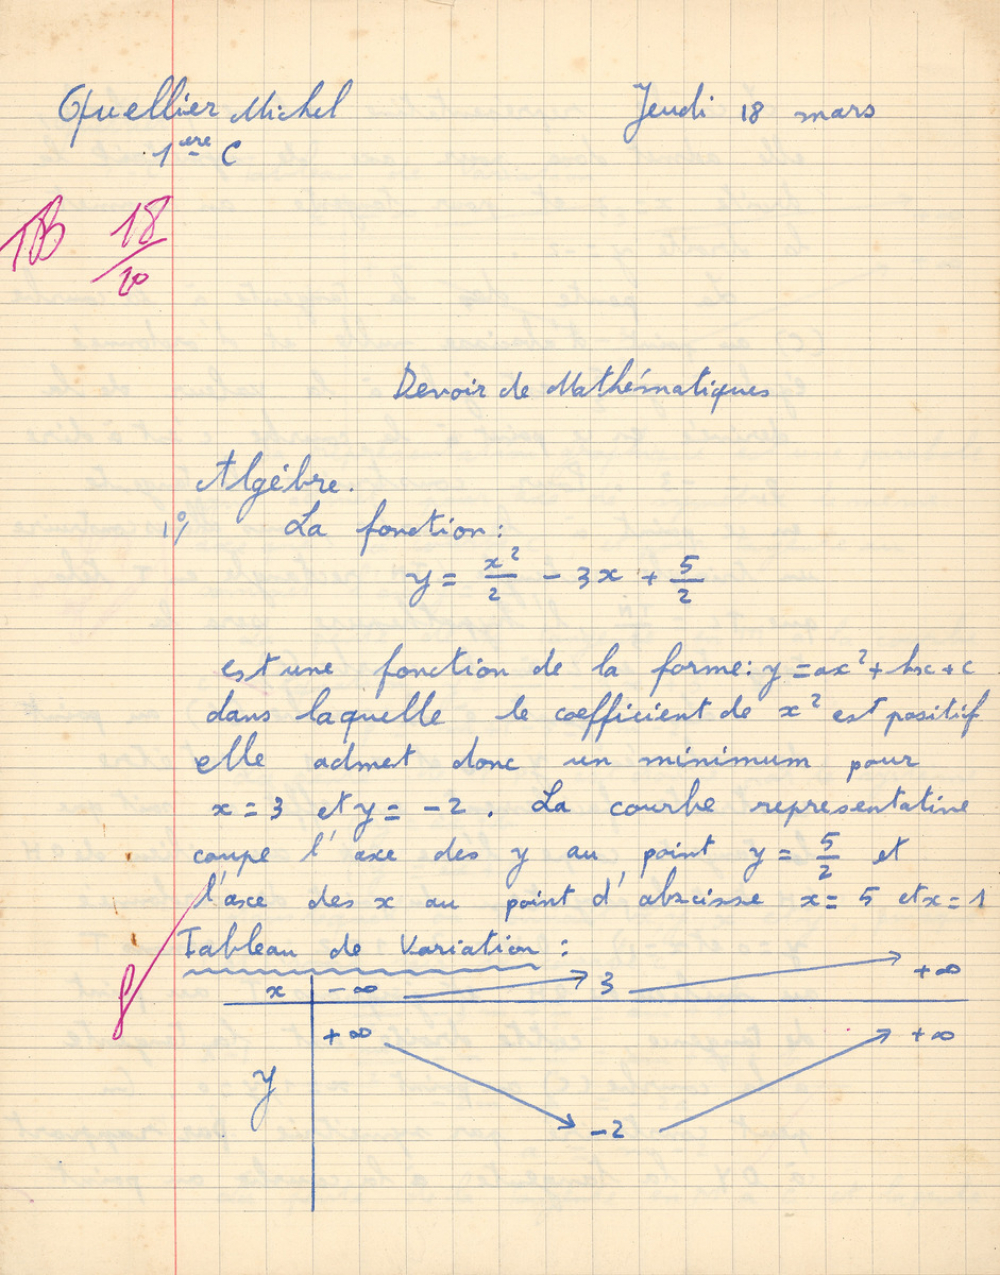 Quellier Michel Jeudi 18 mars
1ère C
TB 18/20
Devoir de Mathématiques
Algèbre.
1°/ La fonction:
y = x²/2 - 3x + 5/2
est une fonction de la forme: y = ax² + bx + c
dans laquelle le coefficient de x² est positif
elle admet donc un minimum pour
x = 3 et y = -2. La courbe représentative
coupe l'axe des y au point y = 5/2 et
l'axe des x au point d'abscisse x = 5 et x = 1
Tableau de Variation:
x -∞ 3 +∞
+∞ +∞
y
-2